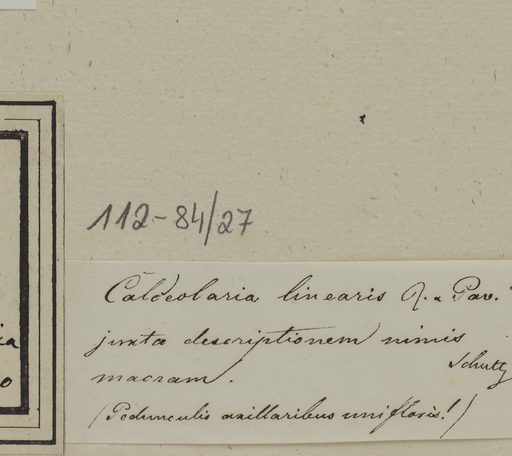 112-84/27
Calceolaria linearis R. & Pav.
juxta descriptionem nimis
macram.
Schultz
(Pedunculis axillaribus unifloris!)
ia
o